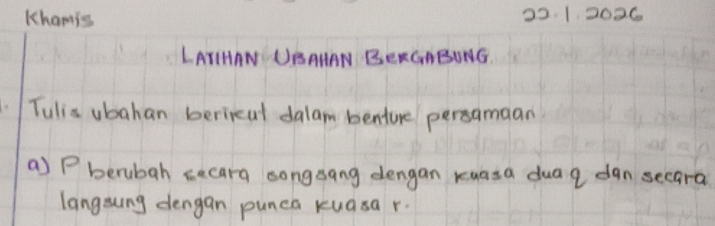 Khamis 22.1.2026
LATIHAN UBAHAN BERGABUNG
1. Tulis ubahan berikut dalam bentuk persamaan.
a) P berubah secara songsang dengan kuasa dua q dan secara
langsung dengan punca kuasa r.